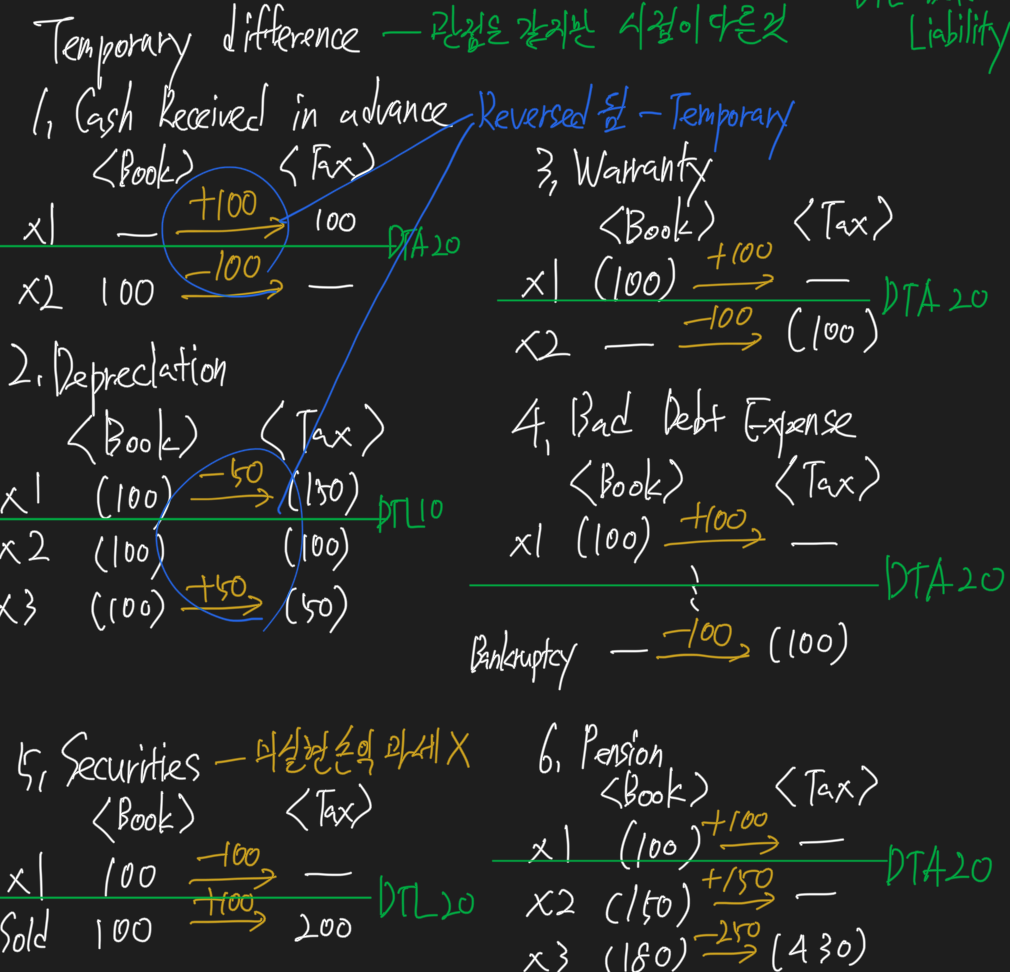 Temporary difference — 관점은 같지만 시점이 다른것
Liability
1. Cash Received in advance
Reversed 됨 - Temporary
<Book> <Tax>
x1 — +100 100
DTA 20
x2 100 -100 —
2. Depreciation
<Book> <Tax>
x1 (100) -50 (150)
DTL 10
x2 (100) (100)
x3 (100) +50 (50)
3. Warranty
<Book> <Tax>
x1 (100) +100 —
DTA 20
x2 — -100 (100)
4. Bad Debt Expense
<Book> <Tax>
x1 (100) +100 —
DTA 20
Bankruptcy — -100 (100)
5. Securities — 미실현손익 과세 X
<Book> <Tax>
x1 100 -100 —
DTL 20
Sold 100 +100 200
6. Pension
<Book> <Tax>
x1 (100) +100 —
DTA 20
x2 (150) +150 —
x3 (180) -250 (430)